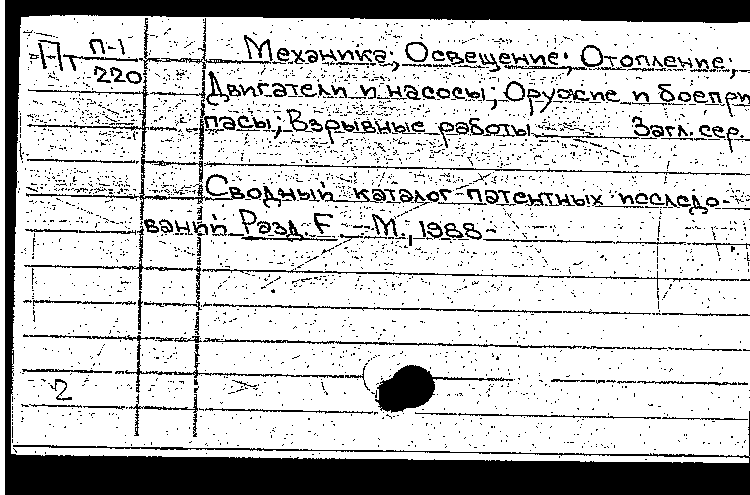 Пт П-1 Механика; Освещение; Отопление;
220 Двигатели и насосы; Оружие и боепри
пасы; Взрывные работы Загл. сер.
Сводный каталог патентных исследо-
ваний Разд. F. — М., 1988-
2